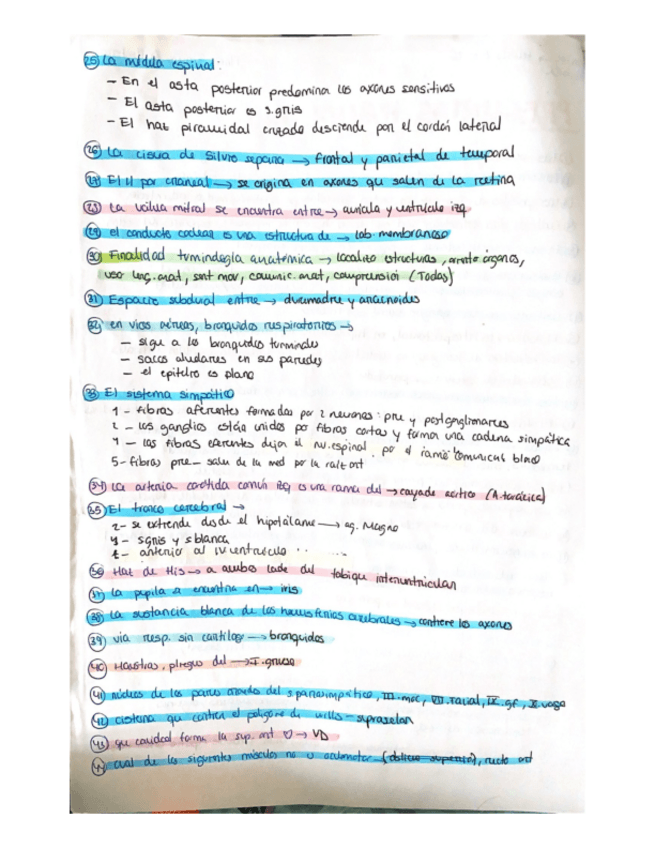 25) La médula espinal:
- En el asta posterior predomina los axones sensitivos
- El asta posterior es s.gris
- El haz piramidal cruzado desciende por el cordón lateral
26) La cisura de Silvio separa → frontal y parietal de temporal
27) El II par craneal → se origina en axones que salen de la retina
28) La válvula mitral se encuentra entre → aurícula y ventrículo izq
29) el conducto coclear es una estructura de → lab. membranoso
30) Finalidad terminología anatómica → localizo estructuras, órganos,
uso leng. anat, sent mov, comunic. anat, comprensión (Todas)
31) Espacio subdual entre → duramadre y aracnoides
32) en vías aéreas, bronquidos respiratorios →
- sigue a los bronquidos terminales
- sacos alveolares en sus paredes
- el epitelio es plano
33) El sistema simpático
1 - fibras aferentes formadas por 2 neuronas: pre y postganglionares
2 - los ganglios están unidos por fibras cortas y forman una cadena simpática
4 - las fibras eferentes dejan el nv. espinal por el ramo comunicat blanco
5 - fibras pre - salen de la med por la raíz ant
34) La arteria carótida común izq es una rama del → cayado aórtico (A. torácica)
35) El tronco cerebral →
2 - se extiende desde el hipotálamo → ag. Magno
4 - s gris y s blanca
- anterior al IV ventrículo
36) Haz de His → a ambos lados del tabique interventricular
37) la pupila se encuentra en → iris
38) la sustancia blanca de los hemisferios cerebrales → contiene los axones
39) vía resp. sin cartílago → bronquidos
40) Haustras, pliegues del → I. grueso
41) núcleos de los pares craneales del s parasimpático, III. moc, VII. facial, IX. gf, X. vago
42) cisterna que contiene el polígono de willis - supraselar
43) que cavidad forma la sup. ant ♡ → VD
44) cual de los siguientes músculos no oculomotor - (oblicuo superior), recto ant